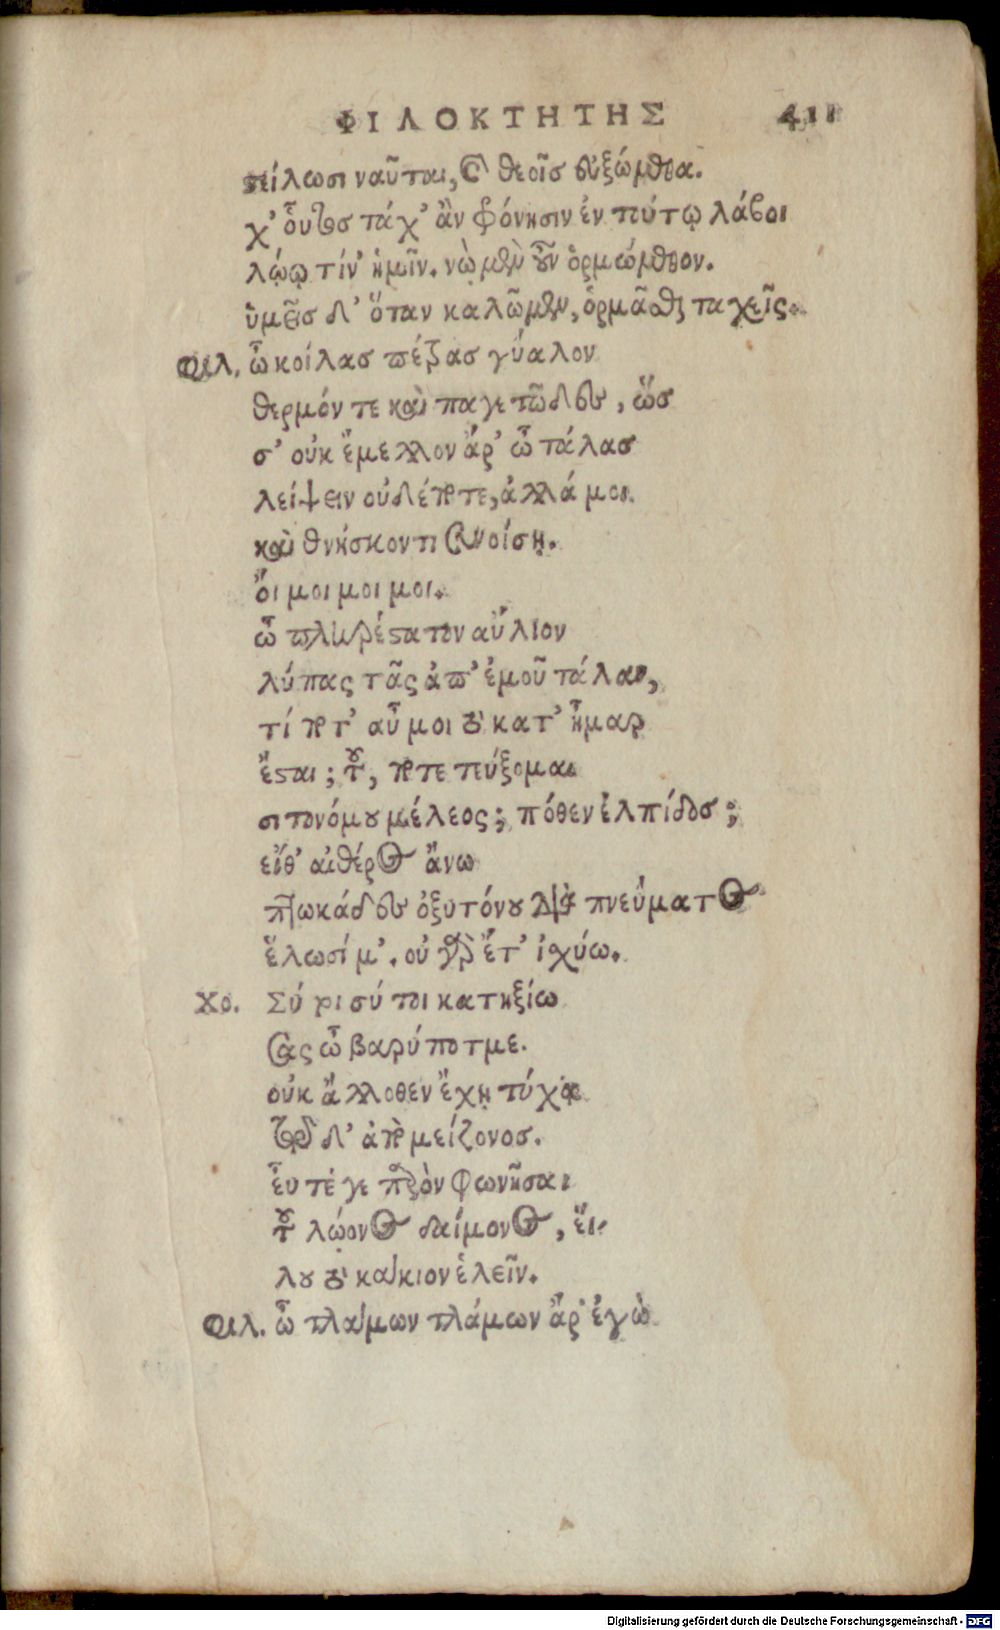 ΦΙΛΟΚΤΗΤΗΣ 411
στείλωσι ναῦται, καὶ θεοῖσ εὐξώμεθα.
χ' οὗτοσ τάχ' ἂν φρόνησιν ἐν τούτῳ λάβοι
λῴω τίν' ἡμῖν. νὼ μὲν οὖν ὁρμώμεθον.
ὑμεῖσ δ' ὅταν καλῶμεν, ὁρμᾶσθε ταχεῖς.
Φιλ. ὦ κοίλασ πέτρασ γύαλον
θερμόν τε καὶ παγετῶδεσ, ὥσ
σ' οὐκ ἔμελλον ἄρ' ὦ τάλασ
λείψειν οὐδέποτε, ἀλλά μοι
καὶ θνήσκοντι συνοίσῃ.
ὅι μοι μοι μοι.
ὦ πληρέστατον αὔλιον
λύπας τᾶς ἀπ' ἐμοῦ τάλαν,
τί ποτ' αὖ μοι τὸ κατ' ἦμαρ
ἔσται; τοῦ, ποτε τεύξομαι
σιτονόμου μέλεος; πόθεν ἐλπίδοσ;
εἴθ' αἰθέρος ἄνω
πτωκάδεσ ὀξυτόνου διὰ πνεύματος
ἕλωσί μ'. οὐ γὰρ ἔτ' ἰσχύω.
Χο. Σύ τοι σύ τοι κατηξίω
σας ὦ βαρύποτμε.
οὐκ ἄλλοθεν ἔχῃ τύχᾳ
τᾷδ δ' ἀπὸ μείζονοσ.
εὖ τέ γε παρὸν φωνῆσαι
τοῦ λῴονος δαίμονος, εἵ-
λου τὸ κάκιον ἑλεῖν.
Φιλ. ὦ τλάμων τλάμων ἄρ' ἐγὼ
Digitalisierung gefördert durch die Deutsche Forschungsgemeinschaft - DFG